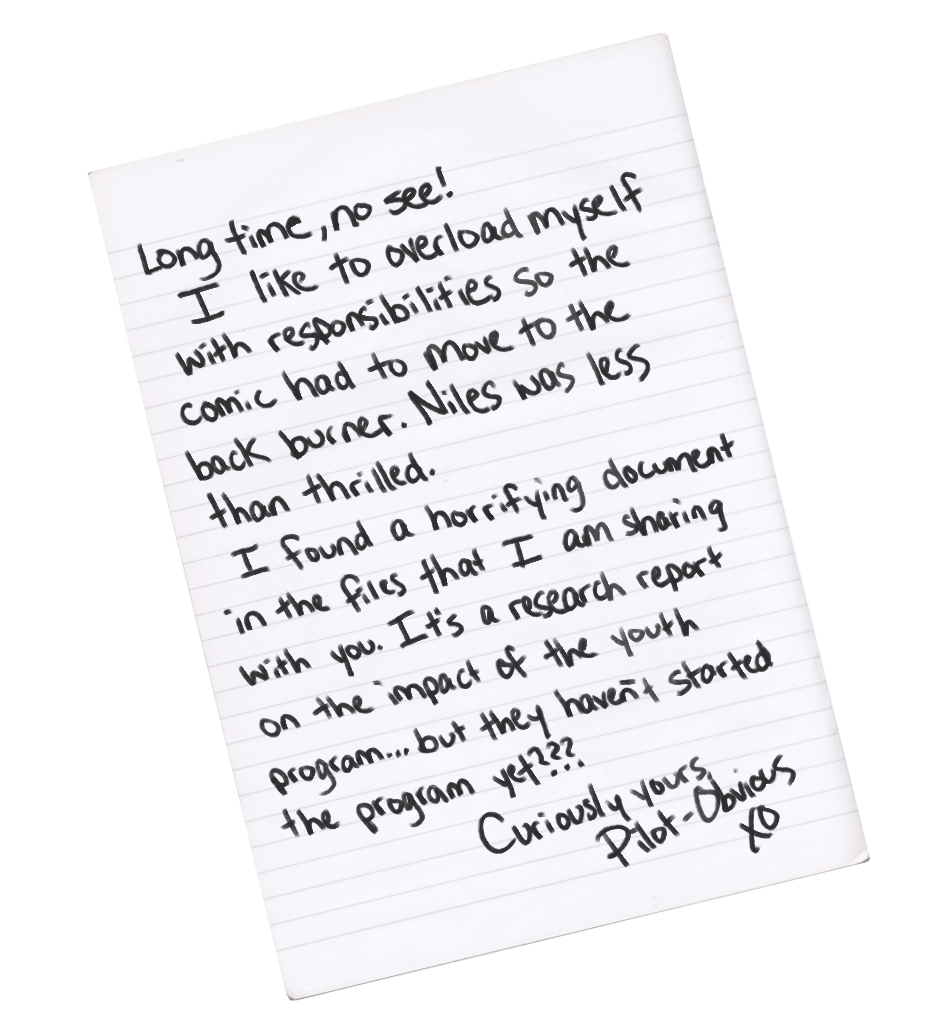 Long time, no see!
I like to overload myself
with responsibilities so the
comic had to move to the
back burner. Niles was less
than thrilled.
I found a horrifying document
in the files that I am sharing
with you. It's a research report
on the impact of the youth
program... but they haven't started
the program yet???
Curiously yours,
Pilot-Obvious
XO